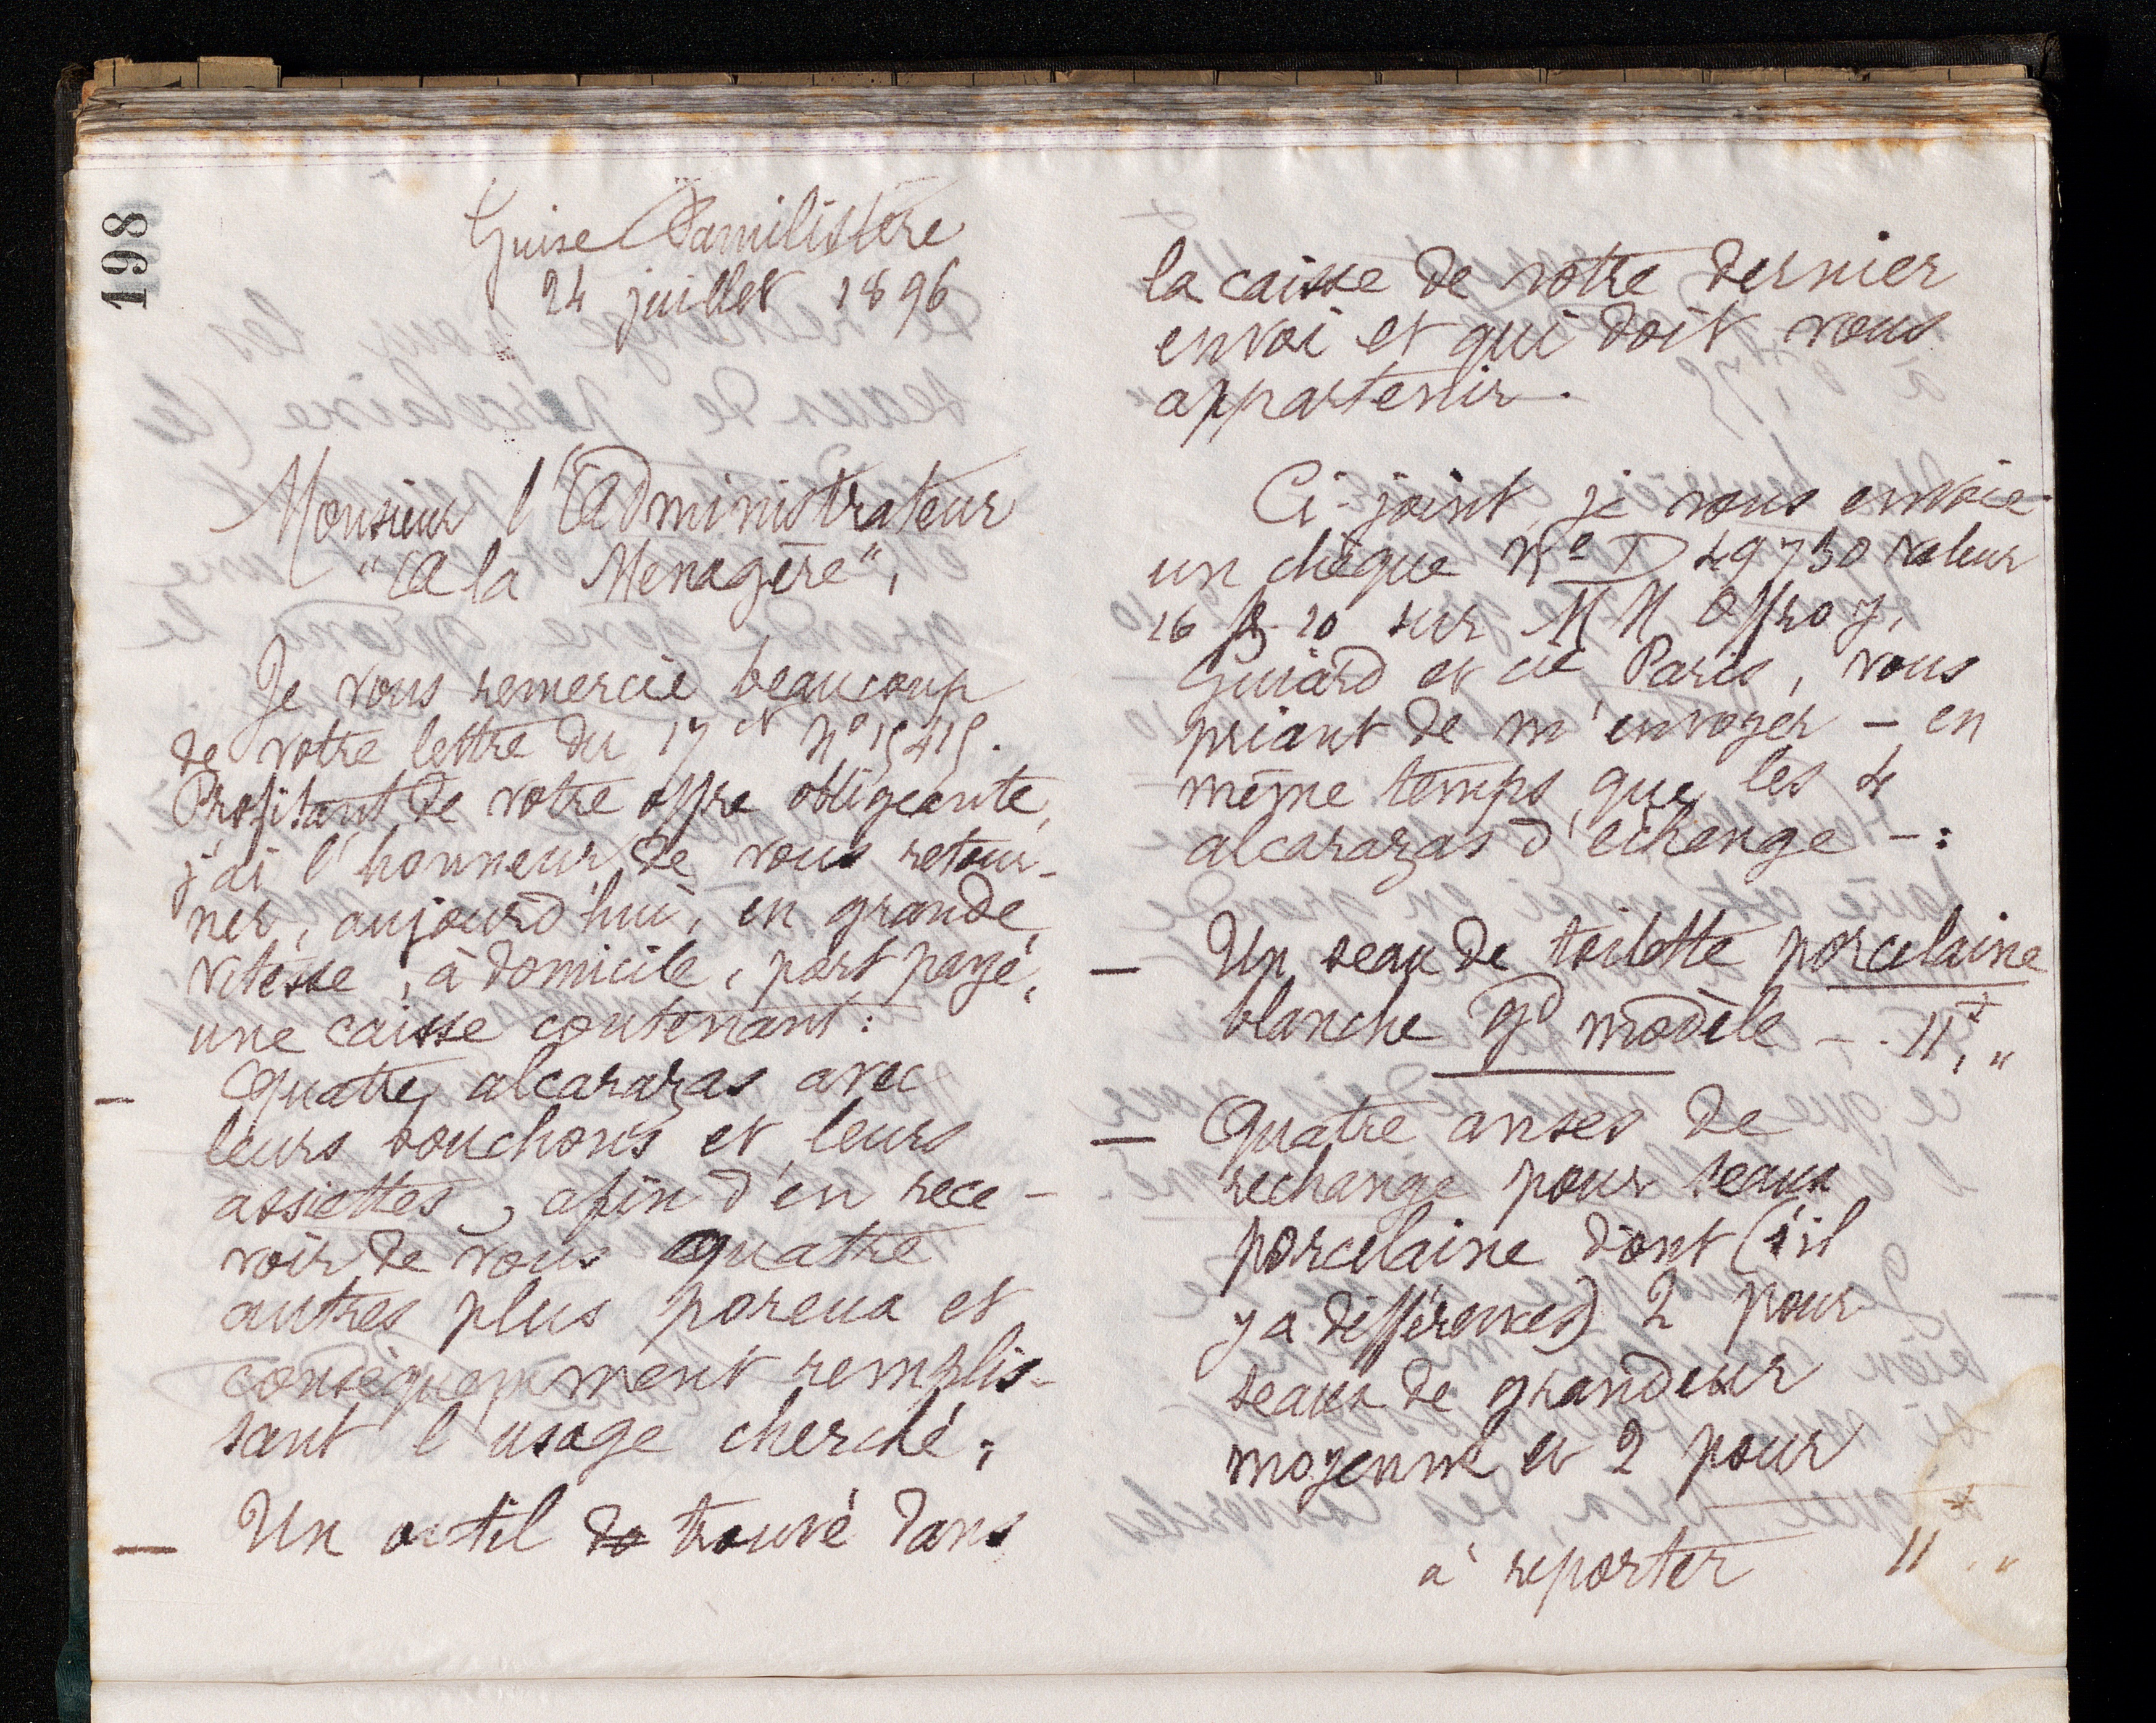 198
Guise Familistère
24 juillet 1896
Monsieur l'Administrateur
"A la Menagère",
Je vous remercie beaucoup
de votre lettre du 17 ct No 15415.
Profitant de votre offre obligeante,
j'ai l'honneur de vous retour-
ner, aujourd'hui, en grande
vitesse, à domicile, port payé,
une caisse contenant:
— Quatre alcarazas avec
leurs bouchons et leurs
assiettes, afin d'en rece-
voir de vous quatre
autres plus poreux et
conséquemment remplis-
sant l'usage cherché;
— Un outil de trouvé dans
la caisse de votre dernier
envoi et qui doit vous
appartenir.
Ci-joint, je vous envoie
un chèque No D 49730 valeur
26 f. 20 sur MM Offroy,
Guiard et cie Paris, vous
priant de m'envoyer – en
même temps que les 4
alcarazas d'échange –:
— Un seau de toilette porcelaine
blanche gd modèle – . 11f, "
— Quatre anses de
rechange pour seaux
porcelaine dont (s'il
y a différences) 2 pour
seaux de grandeur
moyenne et 2 pour
à reporter 11 , "